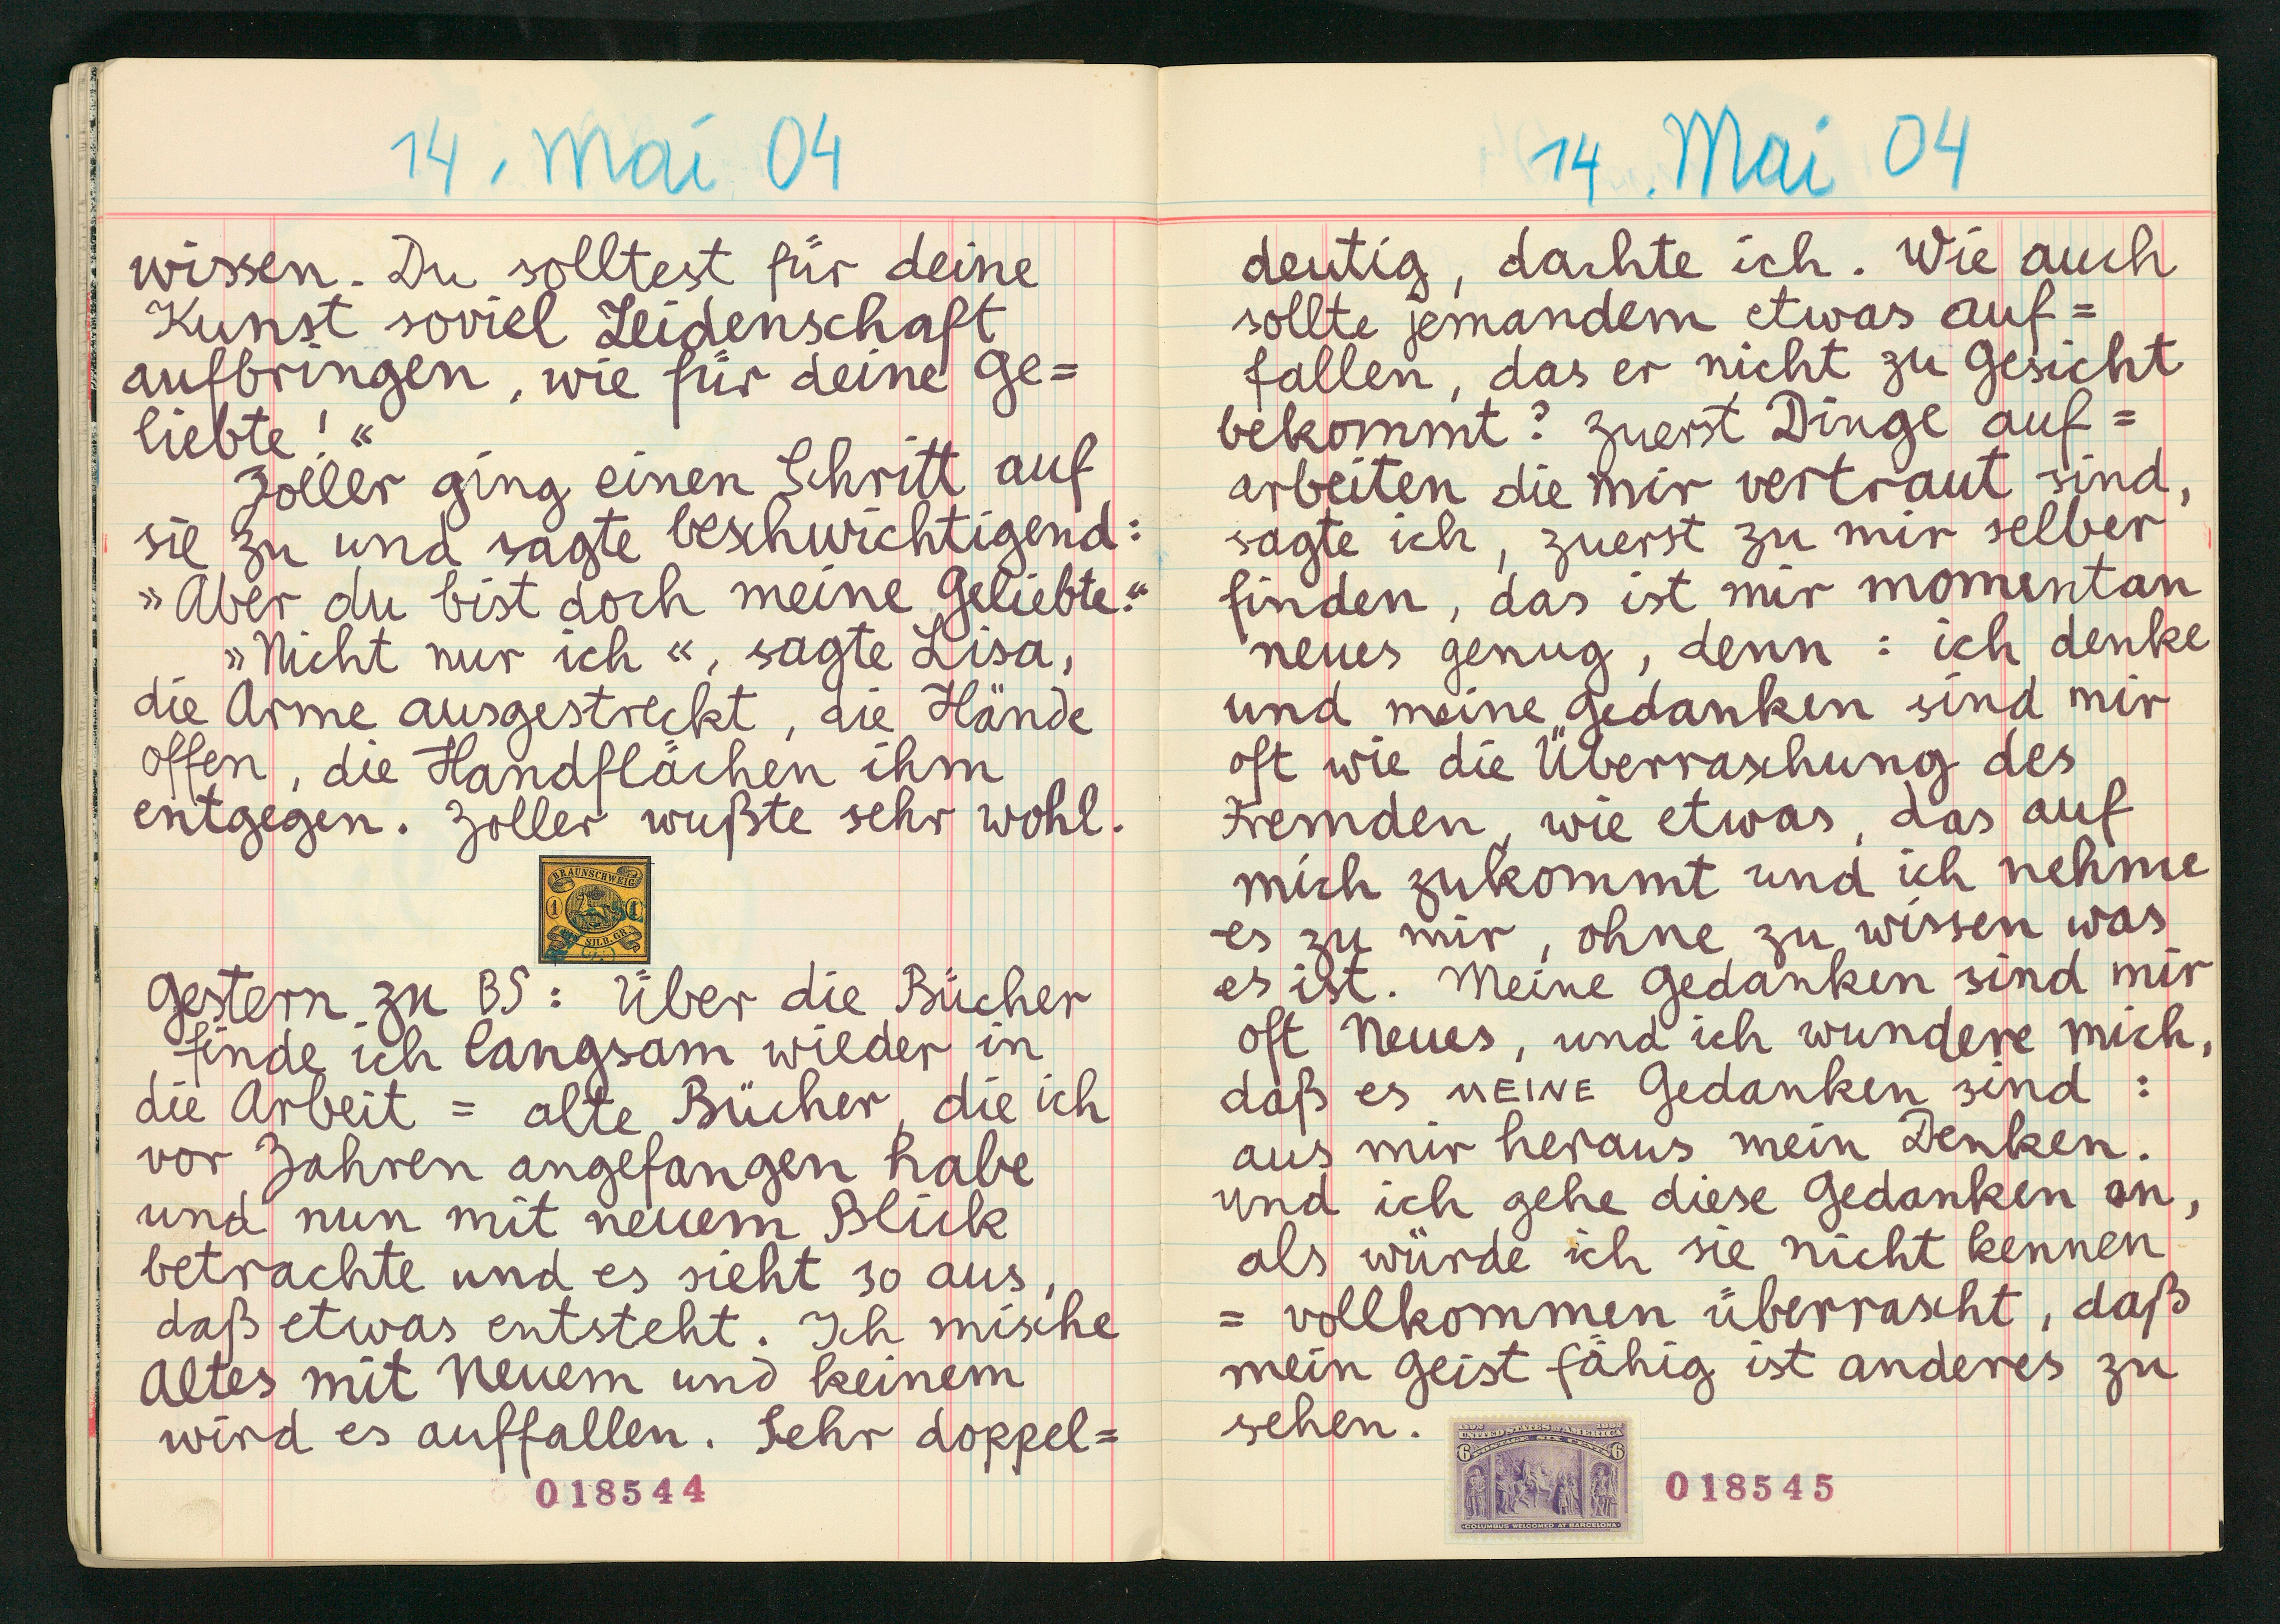 14. Mai 04
wissen. Du solltest für deine
Kunst soviel Leidenschaft
aufbringen, wie für deine Ge=
liebte!«
Zoller ging einen Schritt auf
sie zu und sagte beschwichtigend:
»Aber du bist doch meine Geliebte.«
»Nicht nur ich«, sagte Lisa,
die Arme ausgestreckt, die Hände
offen, die Handflächen ihm
entgegen. Zoller wußte sehr wohl.
BRAUNSCHWEIG
1 1
SILB.GR.
Gestern zu BS: Über die Bücher
finde ich langsam wieder in
die Arbeit = alte Bücher, die ich
vor Jahren angefangen habe
und nun mit neuem Blick
betrachte und es sieht so aus,
daß etwas entsteht. Ich mische
Altes mit Neuem und keinem
wird es auffallen. Sehr doppel=
018544
14. Mai 04
deutig, dachte ich. Wie auch
sollte jemandem etwas auf=
fallen, das er nicht zu Gesicht
bekommt? Zuerst Dinge auf=
arbeiten die mir vertraut sind,
sagte ich, zuerst zu mir selber
finden, das ist mir momentan
neues genug, denn: ich denke
und meine Gedanken sind mir
oft wie die Überraschung des
Fremden, wie etwas, das auf
mich zukommt und ich nehme
es zu mir, ohne zu wissen was
es ist. Meine Gedanken sind mir
oft Neues, und ich wundere mich,
daß es MEINE Gedanken sind:
aus mir heraus mein Denken.
Und ich gehe diese Gedanken an,
als würde ich sie nicht kennen
= vollkommen überrascht, daß
mein Geist fähig ist anderes zu
sehen.
1492 1892
UNITED STATES OF AMERICA
6 POSTAGE SIX CENTS 6
COLUMBUS WELCOMED AT BARCELONA
018545